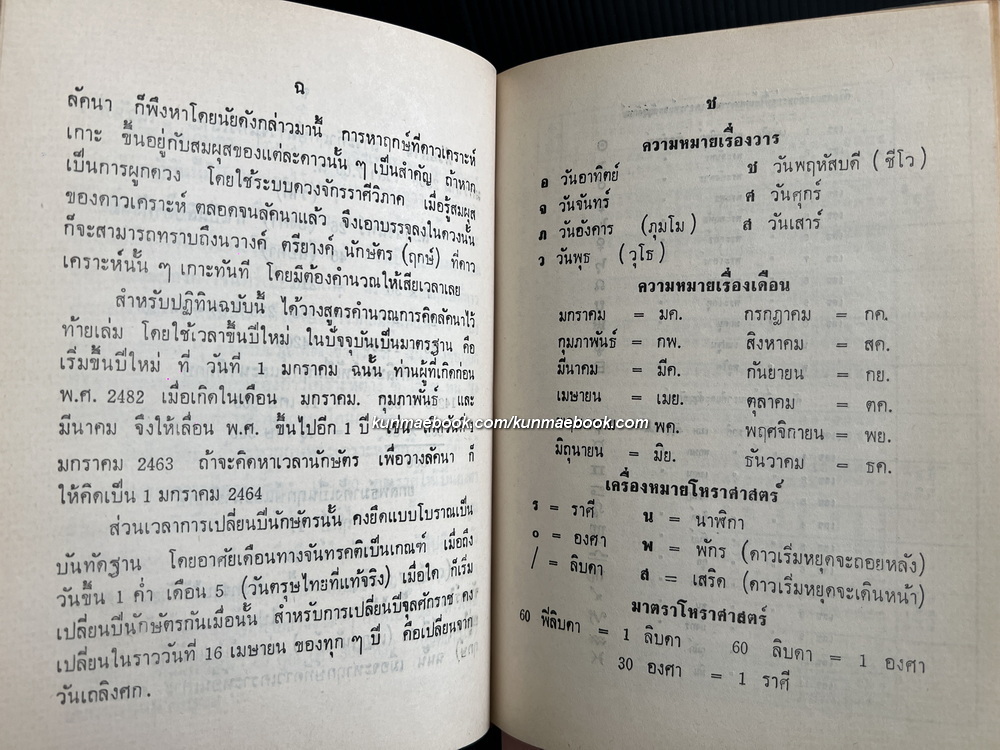 ฉ
ลัคนา ก็พึงหาโดยนัยดังกล่าวมานี้ การหาฤกษ์ที่ดาวเคราะห์
เกาะ ขึ้นอยู่กับสมผุสของแต่ละดาวนั้น ๆ เป็นสำคัญ ถ้าหาก
เป็นการผูกดวง โดยใช้ระบบดวงจักรราศีวิภาค เมื่อรู้สมผุส
ของดาวเคราะห์ ตลอดจนลัคนาแล้ว จึงเอาบรรจุลงในดวงนั้น
ก็จะสามารถทราบถึงนวางค์ ตรียางค์ นักษัตร (ฤกษ์) ที่ดาว
เคราะห์นั้น ๆ เกาะทันที โดยมิต้องคำนวณให้เสียเวลาเลย
สำหรับปฏิทินฉบับนี้ ได้วางสูตรคำนวณการคิดลัคนาไว้
ท้ายเล่ม โดยใช้เวลาขึ้นปีใหม่ ในปัจจุบันเป็นมาตรฐาน คือ
เริ่มขึ้นปีใหม่ ที่ วันที่ 1 มกราคม ฉนั้น ท่านผู้ที่เกิดก่อน
พ.ศ. 2482 เมื่อเกิดในเดือน มกราคม. กุมภาพันธ์ และ
มีนาคม จึงให้เลื่อน พ.ศ. ขึ้นไปอีก 1 ปี
มกราคม 2463 ถ้าจะคิดหาเวลานักษัตร เพื่อวางลัคนา ก็
ให้คิดเป็น 1 มกราคม 2464
ส่วนเวลาการเปลี่ยนปีนักษัตรนั้น คงยึดแบบโบราณเป็น
บันทัดฐาน โดยอาศัยเดือนทางจันทรคติเป็นเกณฑ์ เมื่อถึง
วันขึ้น 1 ค่ำ เดือน 5 (วันตรุษไทยที่แท้จริง) เมื่อใด ก็เริ่ม
เปลี่ยนปีนักษัตรกันเมื่อนั้น สำหรับการเปลี่ยนปีจุลศักราช คง
เปลี่ยนในราววันที่ 16 เมษายน ของทุก ๆ ปี คือเปลี่ยนจาก
วันเถลิงศก.
kunmaebook.com/kunmaebook.com
ช
ความหมายเรื่องวาร
อ วันอาทิตย์ ช วันพฤหัสบดี (ชีโว)
จ วันจันทร์ ศ วันศุกร์
ภ วันอังคาร (ภุมโม) ส วันเสาร์
ว วันพุธ (วุโธ)
ความหมายเรื่องเดือน
มกราคม = มค. กรกฎาคม = กค.
กุมภาพันธ์ = กพ. สิงหาคม = สค.
มีนาคม = มีค. กันยายน = กย.
เมษายน = เมย. ตุลาคม = ตค.
พค. พฤศจิกายน = พย.
มิถุนายน = มิย. ธันวาคม = ธค.
เครื่องหมายโหราศาสตร์
ร = ราศี น = นาฬิกา
° = องศา พ = พักร (ดาวเริ่มหยุดจะถอยหลัง)
/ = ลิบดา ส = เสริด (ดาวเริ่มหยุดจะเดินหน้า)
มาตราโหราศาสตร์
60 ฟีลิบดา = 1 ลิบดา 60 ลิบดา = 1 องศา
30 องศา = 1 ราศี